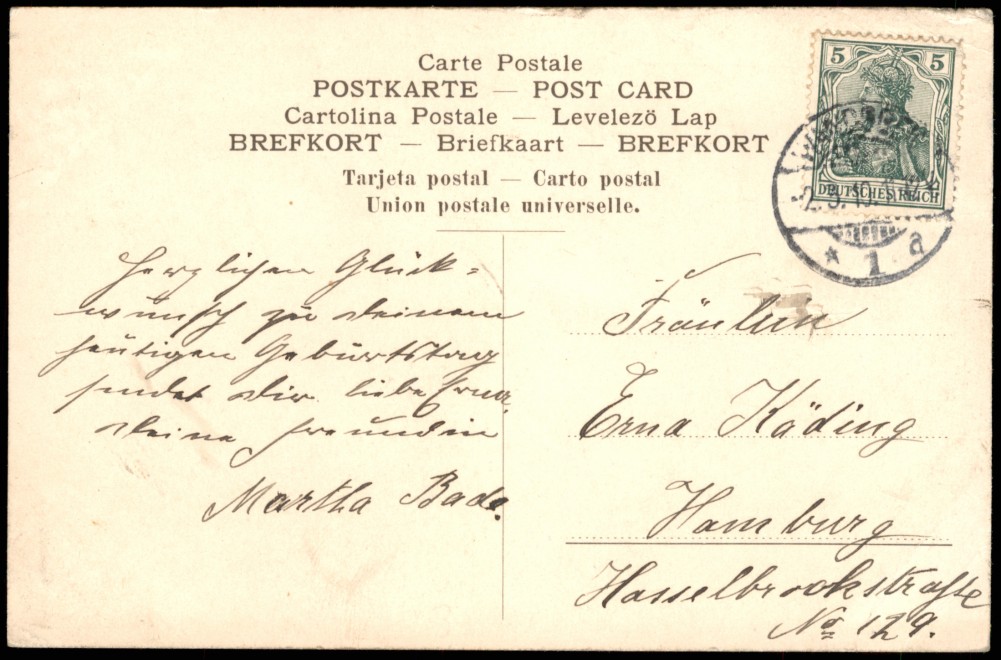 Carte Postale
POSTKARTE — POST CARD
Cartolina Postale — Levelező Lap
BREFKORT — Briefkaart — BREFKORT
Tarjeta postal — Carto postal
Union postale universelle.
5 5
DEUTSCHES REICH
* 1 a
Herzlichen Glück-
wunsch zu deinem
heutigen Geburtstag
sendet dir liebe Erna
deine Freundin
Martha Bade.
Fräulein
Erna Käding
Hamburg
Hasselbrookstraße
No 129.